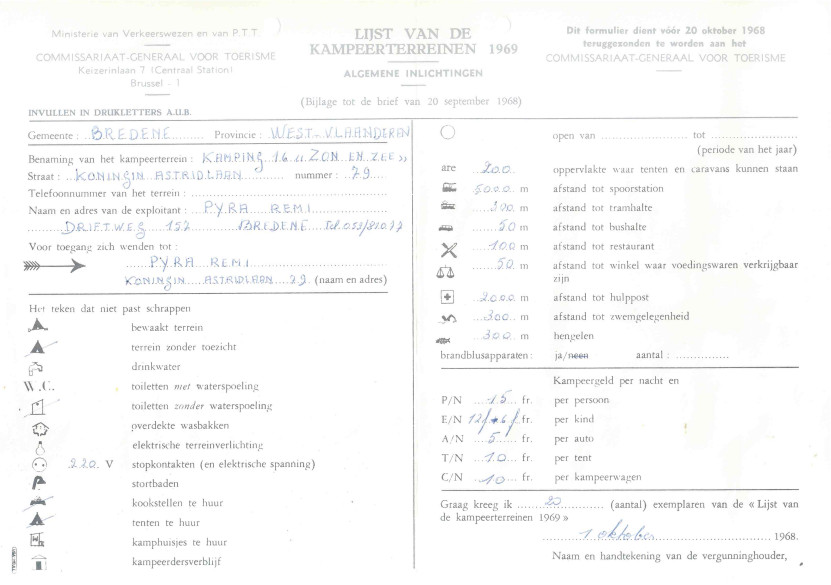 Ministerie van Verkeerswezen en van P.T.T.
COMMISSARIAAT-GENERAAL VOOR TOERISME
Keizerinlaan 7 (Centraal Station)
Brussel - 1
INVULLEN IN DRUKLETTERS A.U.B.
LIJST VAN DE
KAMPEERTERREINEN 1969
ALGEMENE INLICHTINGEN
(Bijlage tot de brief van 20 september 1968)
Dit formulier dient vóór 20 oktober 1968
teruggezonden te worden aan het
COMMISSARIAAT-GENERAAL VOOR TOERISME
Gemeente : BREDENE Provincie : WEST-VLAANDEREN
Benaming van het kampeerterrein : KAMPING 16 « ZON EN ZEE »
Straat : KONINGIN ASTRIDLAAN nummer : 79
Telefoonnummer van het terrein :
Naam en adres van de exploitant : PYRA REMI
DRIFTWEG 152 BREDENE
Voor toegang zich wenden tot :
PYRA REMI
KONINGIN ASTRIDLAAN 79 (naam en adres)
Het teken dat niet past schrappen
bewaakt terrein
terrein zonder toezicht
drinkwater
W.C. toiletten met waterspoeling
toiletten zonder waterspoeling
overdekte wasbakken
elektrische terreinverlichting
220 V stopkontakten (en elektrische spanning)
stortbaden
kookstellen te huur
tenten te huur
kamphuisjes te huur
kampeerdersverblijf
open van tot
(periode van het jaar)
are 200 oppervlakte waar tenten en caravans kunnen staan
5000 m afstand tot spoorstation
300 m afstand tot tramhalte
50 m afstand tot bushalte
100 m afstand tot restaurant
50 m afstand tot winkel waar voedingswaren verkrijgbaar
zijn
2000 m afstand tot hulppost
300 m afstand tot zwemgelegenheid
300 m hengelen
brandblusapparaten : ja/neen aantal :
Kampeergeld per nacht en
P/N 15 fr. per persoon
E/N 12f + 6f fr. per kind
A/N 5 fr. per auto
T/N 10 fr. per tent
C/N 10 fr. per kampeerwagen
Graag kreeg ik 20 (aantal) exemplaren van de « Lijst van
de kampeerterreinen 1969 »
1 oktober 1968.
Naam en handtekening van de vergunninghouder,